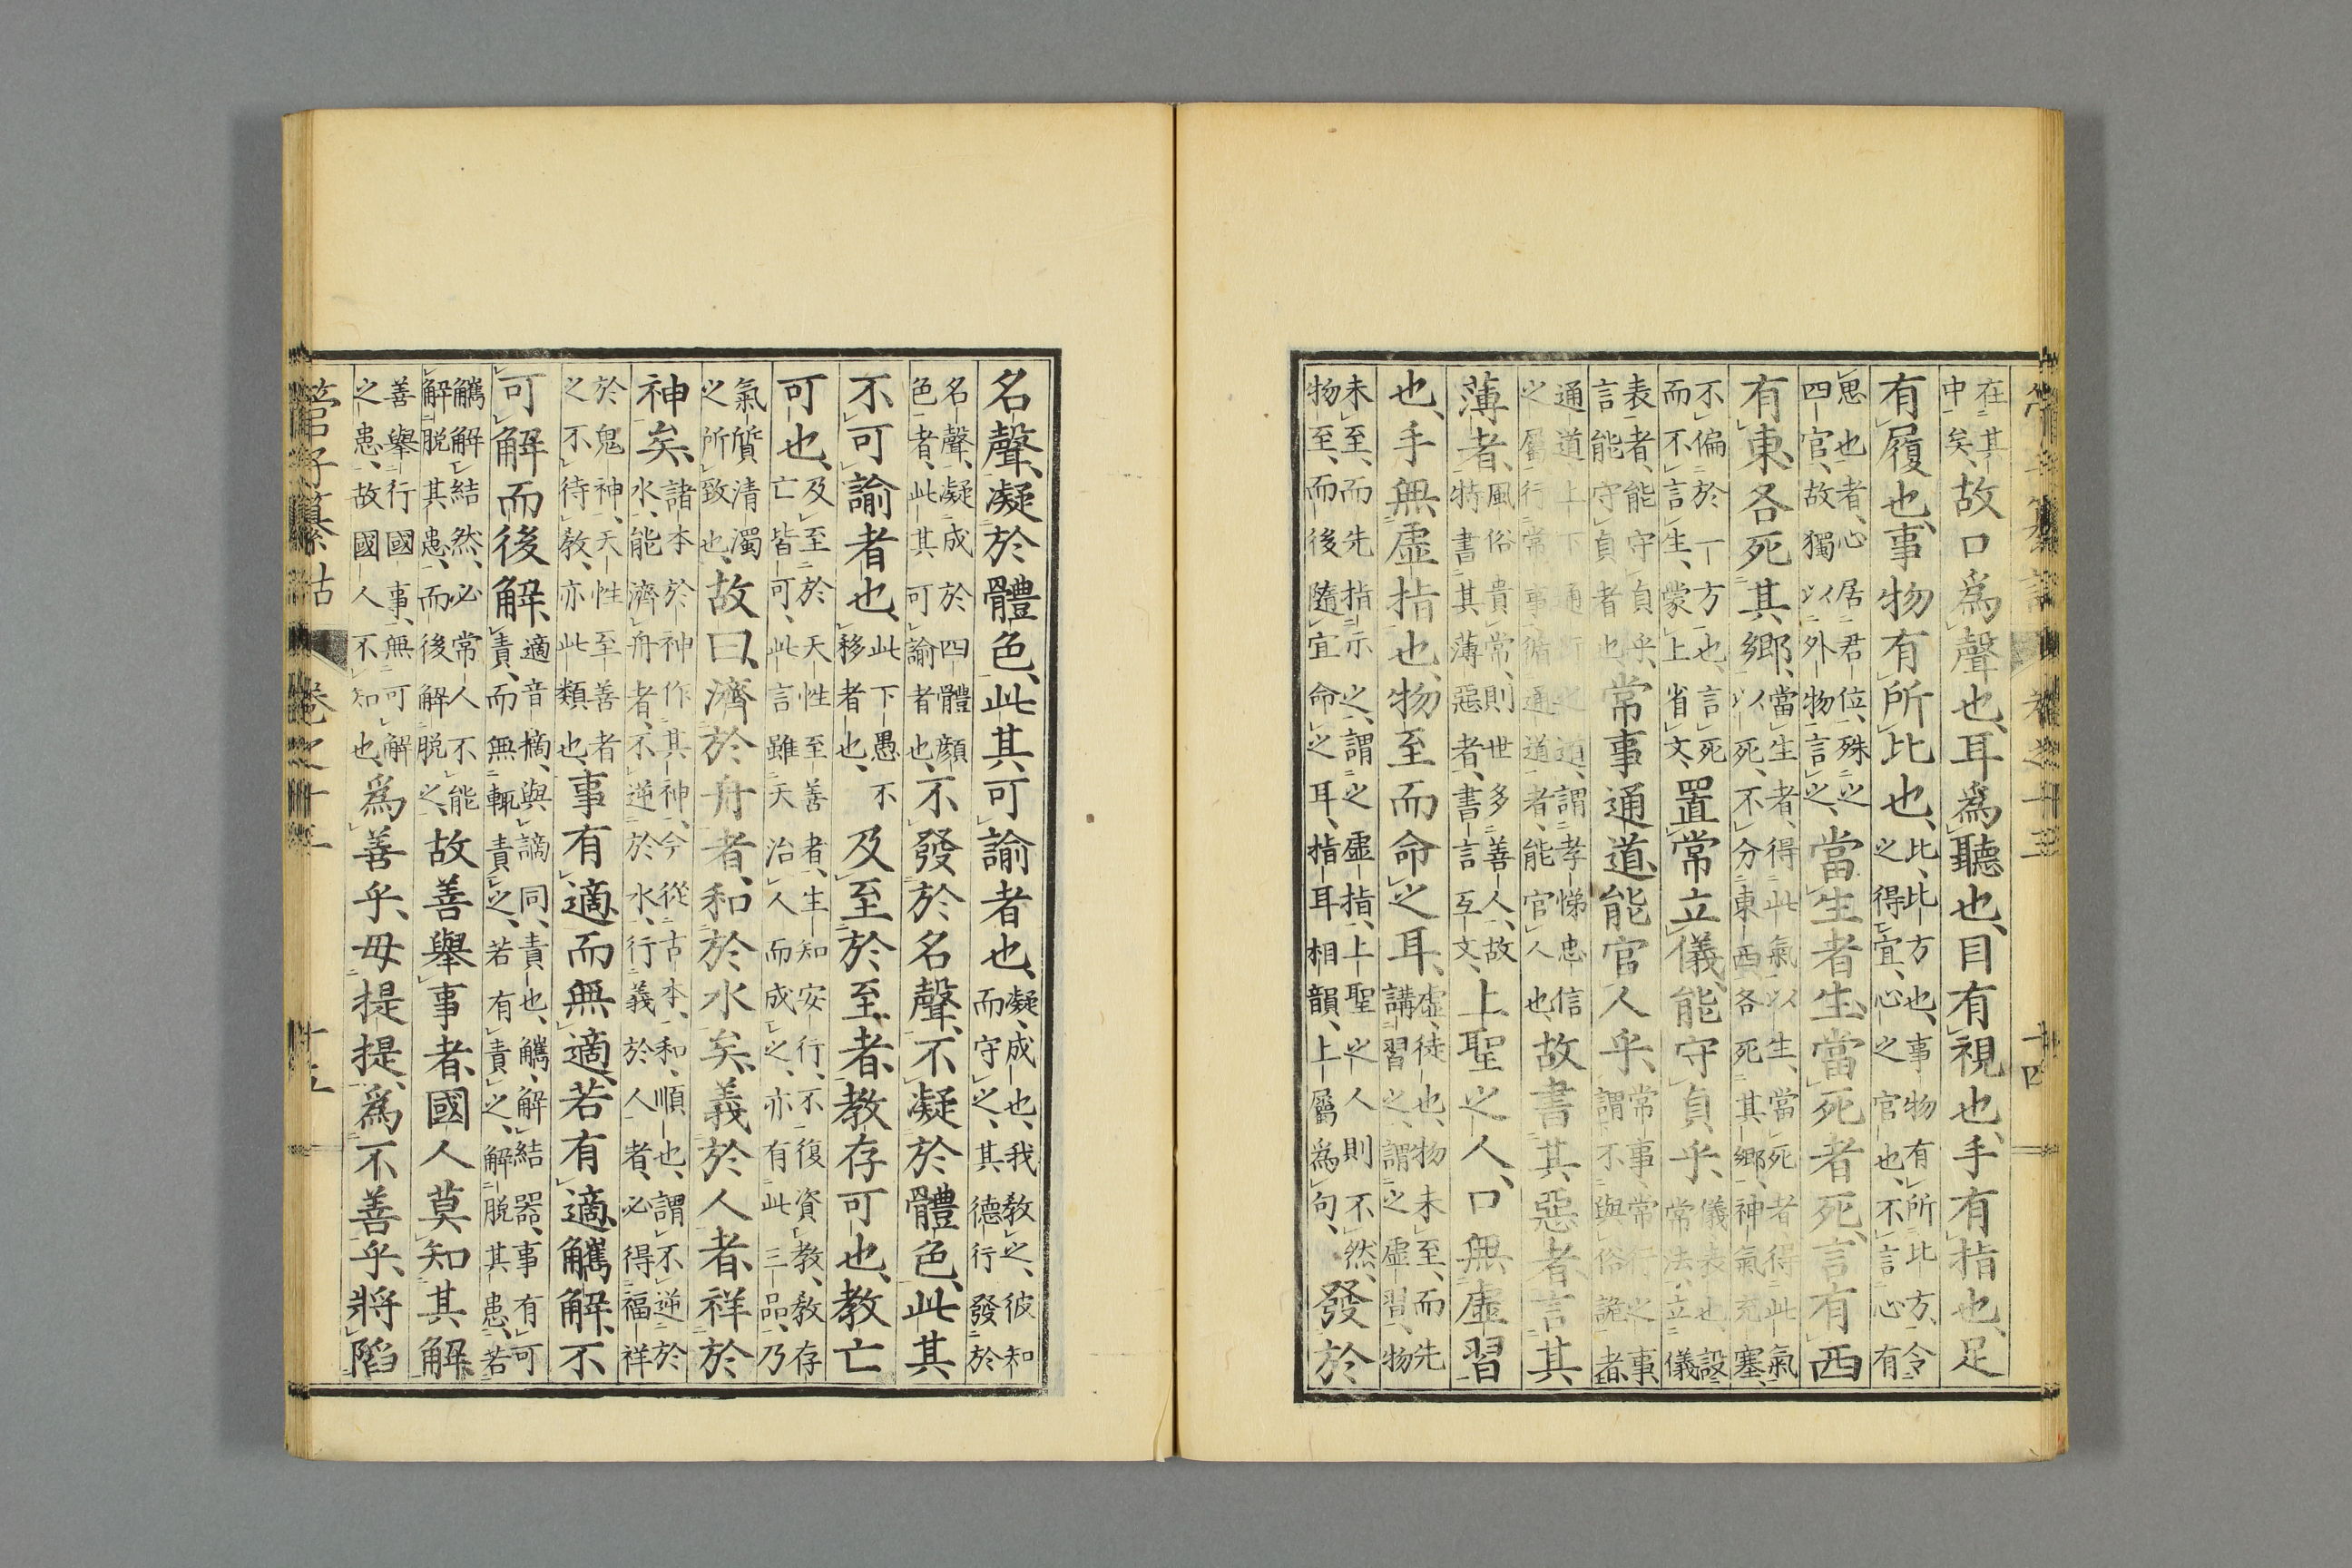 在其
中矣、故口爲聲也、耳爲聽也、目有視也、手有指也、足
有履也、事物有所比也、比、比方也、事物有所比方、令
之得宜、心之官也、不言心有
思也者、心居君位、殊之
四官、故獨以外物言之、當生者生、當死者死、言有西
有東、各死其鄉、當生者、得此氣以生、當死者、得此氣
以死、不分東西、各死其鄉、神氣充塞、
不偏於一方也、言死
而不言生、蒙上省文、置常立儀、能守貞乎、儀表也、設
常法、立儀
表者、能守貞乎、
言能守貞者也、常事通道、能官人乎、常事、常行之事、
謂不與俗詭者、
通道上下通行之道、謂孝悌忠信
之屬、行常事、循通道者、能官人也、故書其惡者、言其
薄者、風俗貴常、則世多善人、故
特書其薄惡者、書言互文、上聖之人、口無虛習
也、手無虛指也、物至而命之耳、虛、徒也、物未至、而先
講習之、謂之虛習、物
未至、而先指示之、謂之虛指、上聖之人則不然、
物至、而後隨宜命之耳、指耳相韻、上屬爲句、發於
名聲、凝於體色、此其可諭者也、凝、成也、我教之、彼知
而守之、其德行發於
名聲、凝成於四體顏
色者、此其可諭者也、不發於名聲、不凝於體色、此其
不可諭者也、此下愚不
移者也、及至於至者、教存可也、教亡
可也、及至於天性至善者、生知安行、不復資教、教存
亡皆可、此言雖天治人而成之、亦有此三品、乃
氣質清濁
之所致也、故曰、濟於舟者、和於水矣、義於人者、祥於
神矣、諸本於神作其神、今從古本、和、順也、謂不逆於
水、能濟舟者、不逆於水、行義於人者、必得福祥
於鬼神、天性至善者
之不待教、亦此類也、事有適、而無適、若有適、觿解、不
可解而後解、適音摘、與謫同、責也、觿、解結器、事有可
責、而無輒責之、若有責之、解脫其患、若
觿解結然、必常人不能
解脫其患、而後解脫之、故善舉事者、國人莫知其解、
善舉行國事、無可解
之患、故國人不知也、爲善乎、毋提提、爲不善乎、將陷
管子纂詁 卷之十三 十五